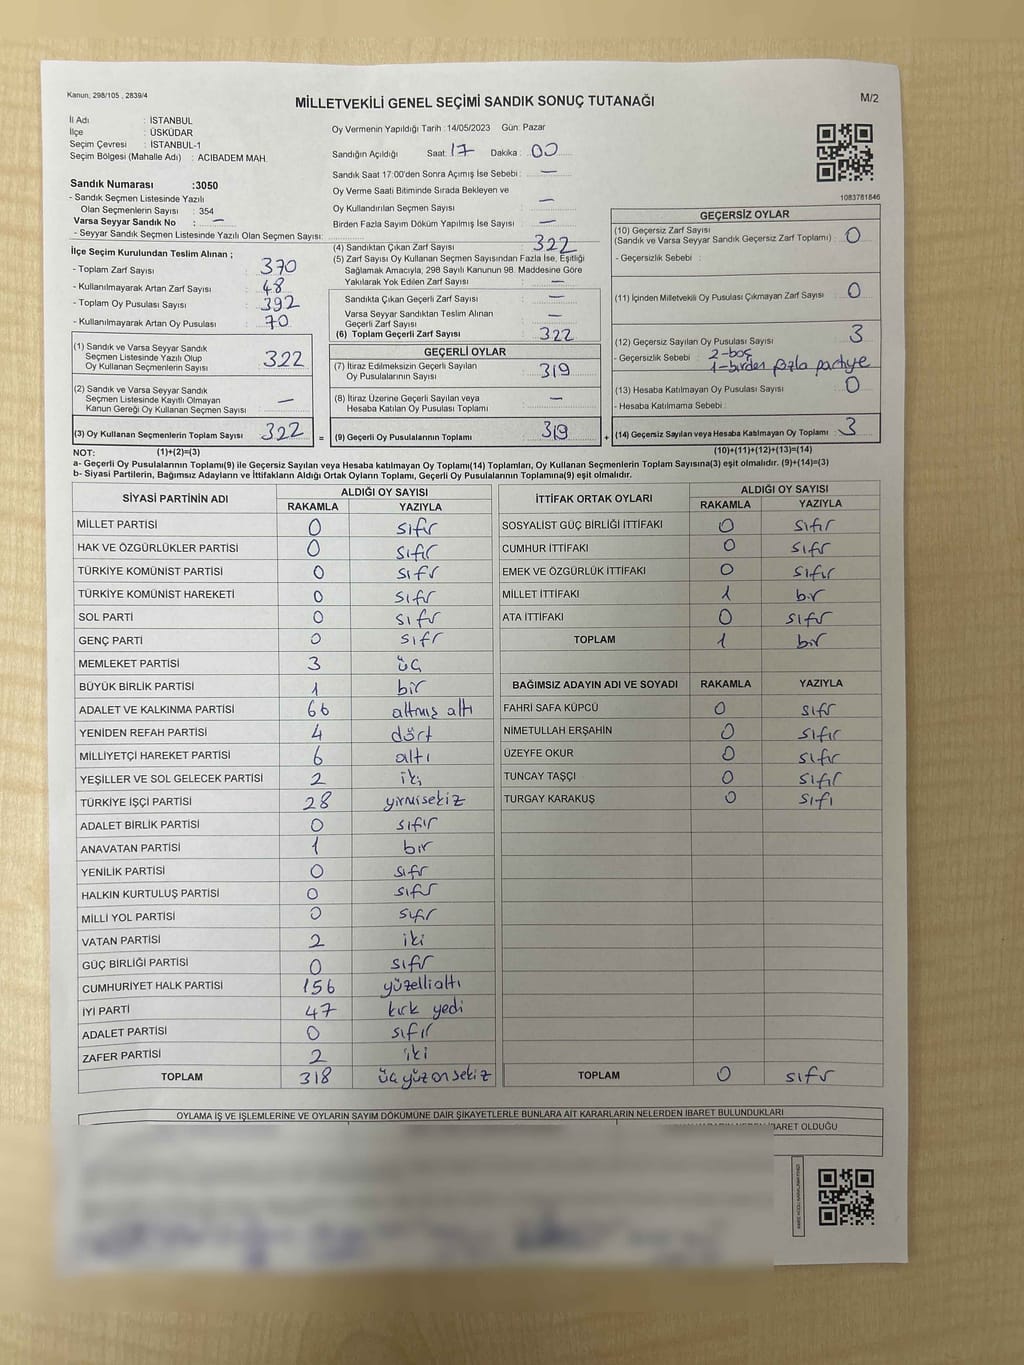 Kanun, 298/105 , 2839/4
MİLLETVEKİLİ GENEL SEÇİMİ SANDIK SONUÇ TUTANAĞI
M/2
İl Adı : İSTANBUL
İlçe : ÜSKÜDAR
Seçim Çevresi : İSTANBUL-1
Seçim Bölgesi (Mahalle Adı) : ACIBADEM MAH.
Oy Vermenin Yapıldığı Tarih : 14/05/2023 Gün: Pazar
Sandığın Açıldığı Saat: 17 Dakika : 00
Sandık Saat 17:00'den Sonra Açımış İse Sebebi : —
Oy Verme Saati Bitiminde Sırada Bekleyen ve
Oy Kullandırılan Seçmen Sayısı : —
Birden Fazla Sayım Döküm Yapılmış İse Sayısı : —
1083781846
Sandık Numarası :3050
- Sandık Seçmen Listesinde Yazılı
Olan Seçmenlerin Sayısı : 354
Varsa Seyyar Sandık No : —
- Seyyar Sandık Seçmen Listesinde Yazılı Olan Seçmen Sayısı:
İlçe Seçim Kurulundan Teslim Alınan ;
- Toplam Zarf Sayısı : 370
- Kullanılmayarak Artan Zarf Sayısı : 48
- Toplam Oy Pusulası Sayısı : 392
- Kullanılmayarak Artan Oy Pusulası : 70
(1) Sandık ve Varsa Seyyar Sandık
Seçmen Listesinde Yazılı Olup
Oy Kullanan Seçmenlerin Sayısı : 322
(2) Sandık ve Varsa Seyyar Sandık
Seçmen Listesinde Kayıtlı Olmayan
Kanun Gereği Oy Kullanan Seçmen Sayısı : —
(3) Oy Kullanan Seçmenlerin Toplam Sayısı : 322
(4) Sandıktan Çıkan Zarf Sayısı : 322
(5) Zarf Sayısı Oy Kullanan Seçmen Sayısından Fazla İse, Eşitliği
Sağlamak Amacıyla, 298 Sayılı Kanunun 98. Maddesine Göre
Yakılarak Yok Edilen Zarf Sayısı : —
Sandıkta Çıkan Geçerli Zarf Sayısı : —
Varsa Seyyar Sandıktan Teslim Alınan
Geçerli Zarf Sayısı : —
(6) Toplam Geçerli Zarf Sayısı : 322
GEÇERLİ OYLAR
(7) İtiraz Edilmeksizin Geçerli Sayılan
Oy Pusulalarının Sayısı : 319
(8) İtiraz Üzerine Geçerli Sayılan veya
Hesaba Katılan Oy Pusulası Toplamı : —
= (9) Geçerli Oy Pusulalarının Toplamı : 319
GEÇERSİZ OYLAR
(10) Geçersiz Zarf Sayısı
(Sandık ve Varsa Seyyar Sandık Geçersiz Zarf Toplamı) : 0
- Geçersizlik Sebebi :
(11) İçinden Milletvekili Oy Pusulası Çıkmayan Zarf Sayısı : 0
(12) Geçersiz Sayılan Oy Pusulası Sayısı : 3
- Geçersizlik Sebebi : 2-boş
1-birden fazla partiye
(13) Hesaba Katılmayan Oy Pusulası Sayısı : 0
- Hesaba Katılmama Sebebi :
+ (14) Geçersiz Sayılan veya Hesaba Katılmayan Oy Toplamı : 3
NOT: (1)+(2)=(3) (10)+(11)+(12)+(13)=(14)
a- Geçerli Oy Pusulalarının Toplamı(9) ile Geçersiz Sayılan veya Hesaba katılmayan Oy Toplamı(14) Toplamları, Oy Kullanan Seçmenlerin Toplam Sayısına(3) eşit olmalıdır. (9)+(14)=(3)
b- Siyasi Partilerin, Bağımsız Adayların ve İttifakların Aldığı Ortak Oyların Toplamı, Geçerli Oy Pusulalarının Toplamına(9) eşit olmalıdır.
SİYASİ PARTİNİN ADI ALDIĞI OY SAYISI
RAKAMLA YAZIYLA
MİLLET PARTİSİ 0 sıfır
HAK VE ÖZGÜRLÜKLER PARTİSİ 0 sıfır
TÜRKİYE KOMÜNİST PARTİSİ 0 sıfır
TÜRKİYE KOMÜNİST HAREKETİ 0 sıfır
SOL PARTİ 0 sıfır
GENÇ PARTİ 0 sıfır
MEMLEKET PARTİSİ 3 üç
BÜYÜK BİRLİK PARTİSİ 1 bir
ADALET VE KALKINMA PARTİSİ 66 altmış altı
YENİDEN REFAH PARTİSİ 4 dört
MİLLİYETÇİ HAREKET PARTİSİ 6 altı
YEŞİLLER VE SOL GELECEK PARTİSİ 2 iki
TÜRKİYE İŞÇİ PARTİSİ 28 yirmisekiz
ADALET BİRLİK PARTİSİ 0 sıfır
ANAVATAN PARTİSİ 1 bir
YENİLİK PARTİSİ 0 sıfır
HALKIN KURTULUŞ PARTİSİ 0 sıfır
MİLLİ YOL PARTİSİ 0 sıfır
VATAN PARTİSİ 2 iki
GÜÇ BİRLİĞİ PARTİSİ 0 sıfır
CUMHURİYET HALK PARTİSİ 156 yüzellialtı
İYİ PARTİ 47 kırk yedi
ADALET PARTİSİ 0 sıfır
ZAFER PARTİSİ 2 iki
TOPLAM 318 üçyüzonsekiz
İTTİFAK ORTAK OYLARI ALDIĞI OY SAYISI
RAKAMLA YAZIYLA
SOSYALİST GÜÇ BİRLİĞİ İTTİFAKI 0 sıfır
CUMHUR İTTİFAKI 0 sıfır
EMEK VE ÖZGÜRLÜK İTTİFAKI 0 sıfır
MİLLET İTTİFAKI 1 bir
ATA İTTİFAKI 0 sıfır
TOPLAM 1 bir
BAĞIMSIZ ADAYIN ADI VE SOYADI RAKAMLA YAZIYLA
FAHRİ SAFA KÜPCÜ 0 sıfır
NİMETULLAH ERŞAHİN 0 sıfır
ÜZEYFE OKUR 0 sıfır
TUNCAY TAŞÇI 0 sıfır
TURGAY KARAKUŞ 0 sıfı
TOPLAM 0 sıfır
OYLAMA İŞ VE İŞLEMLERİNE VE OYLARIN SAYIM DÖKÜMÜNE DAİR ŞİKAYETLERLE BUNLARA AİT KARARLARIN NELERDEN İBARET BULUNDUKLARI
İBARET OLDUĞU